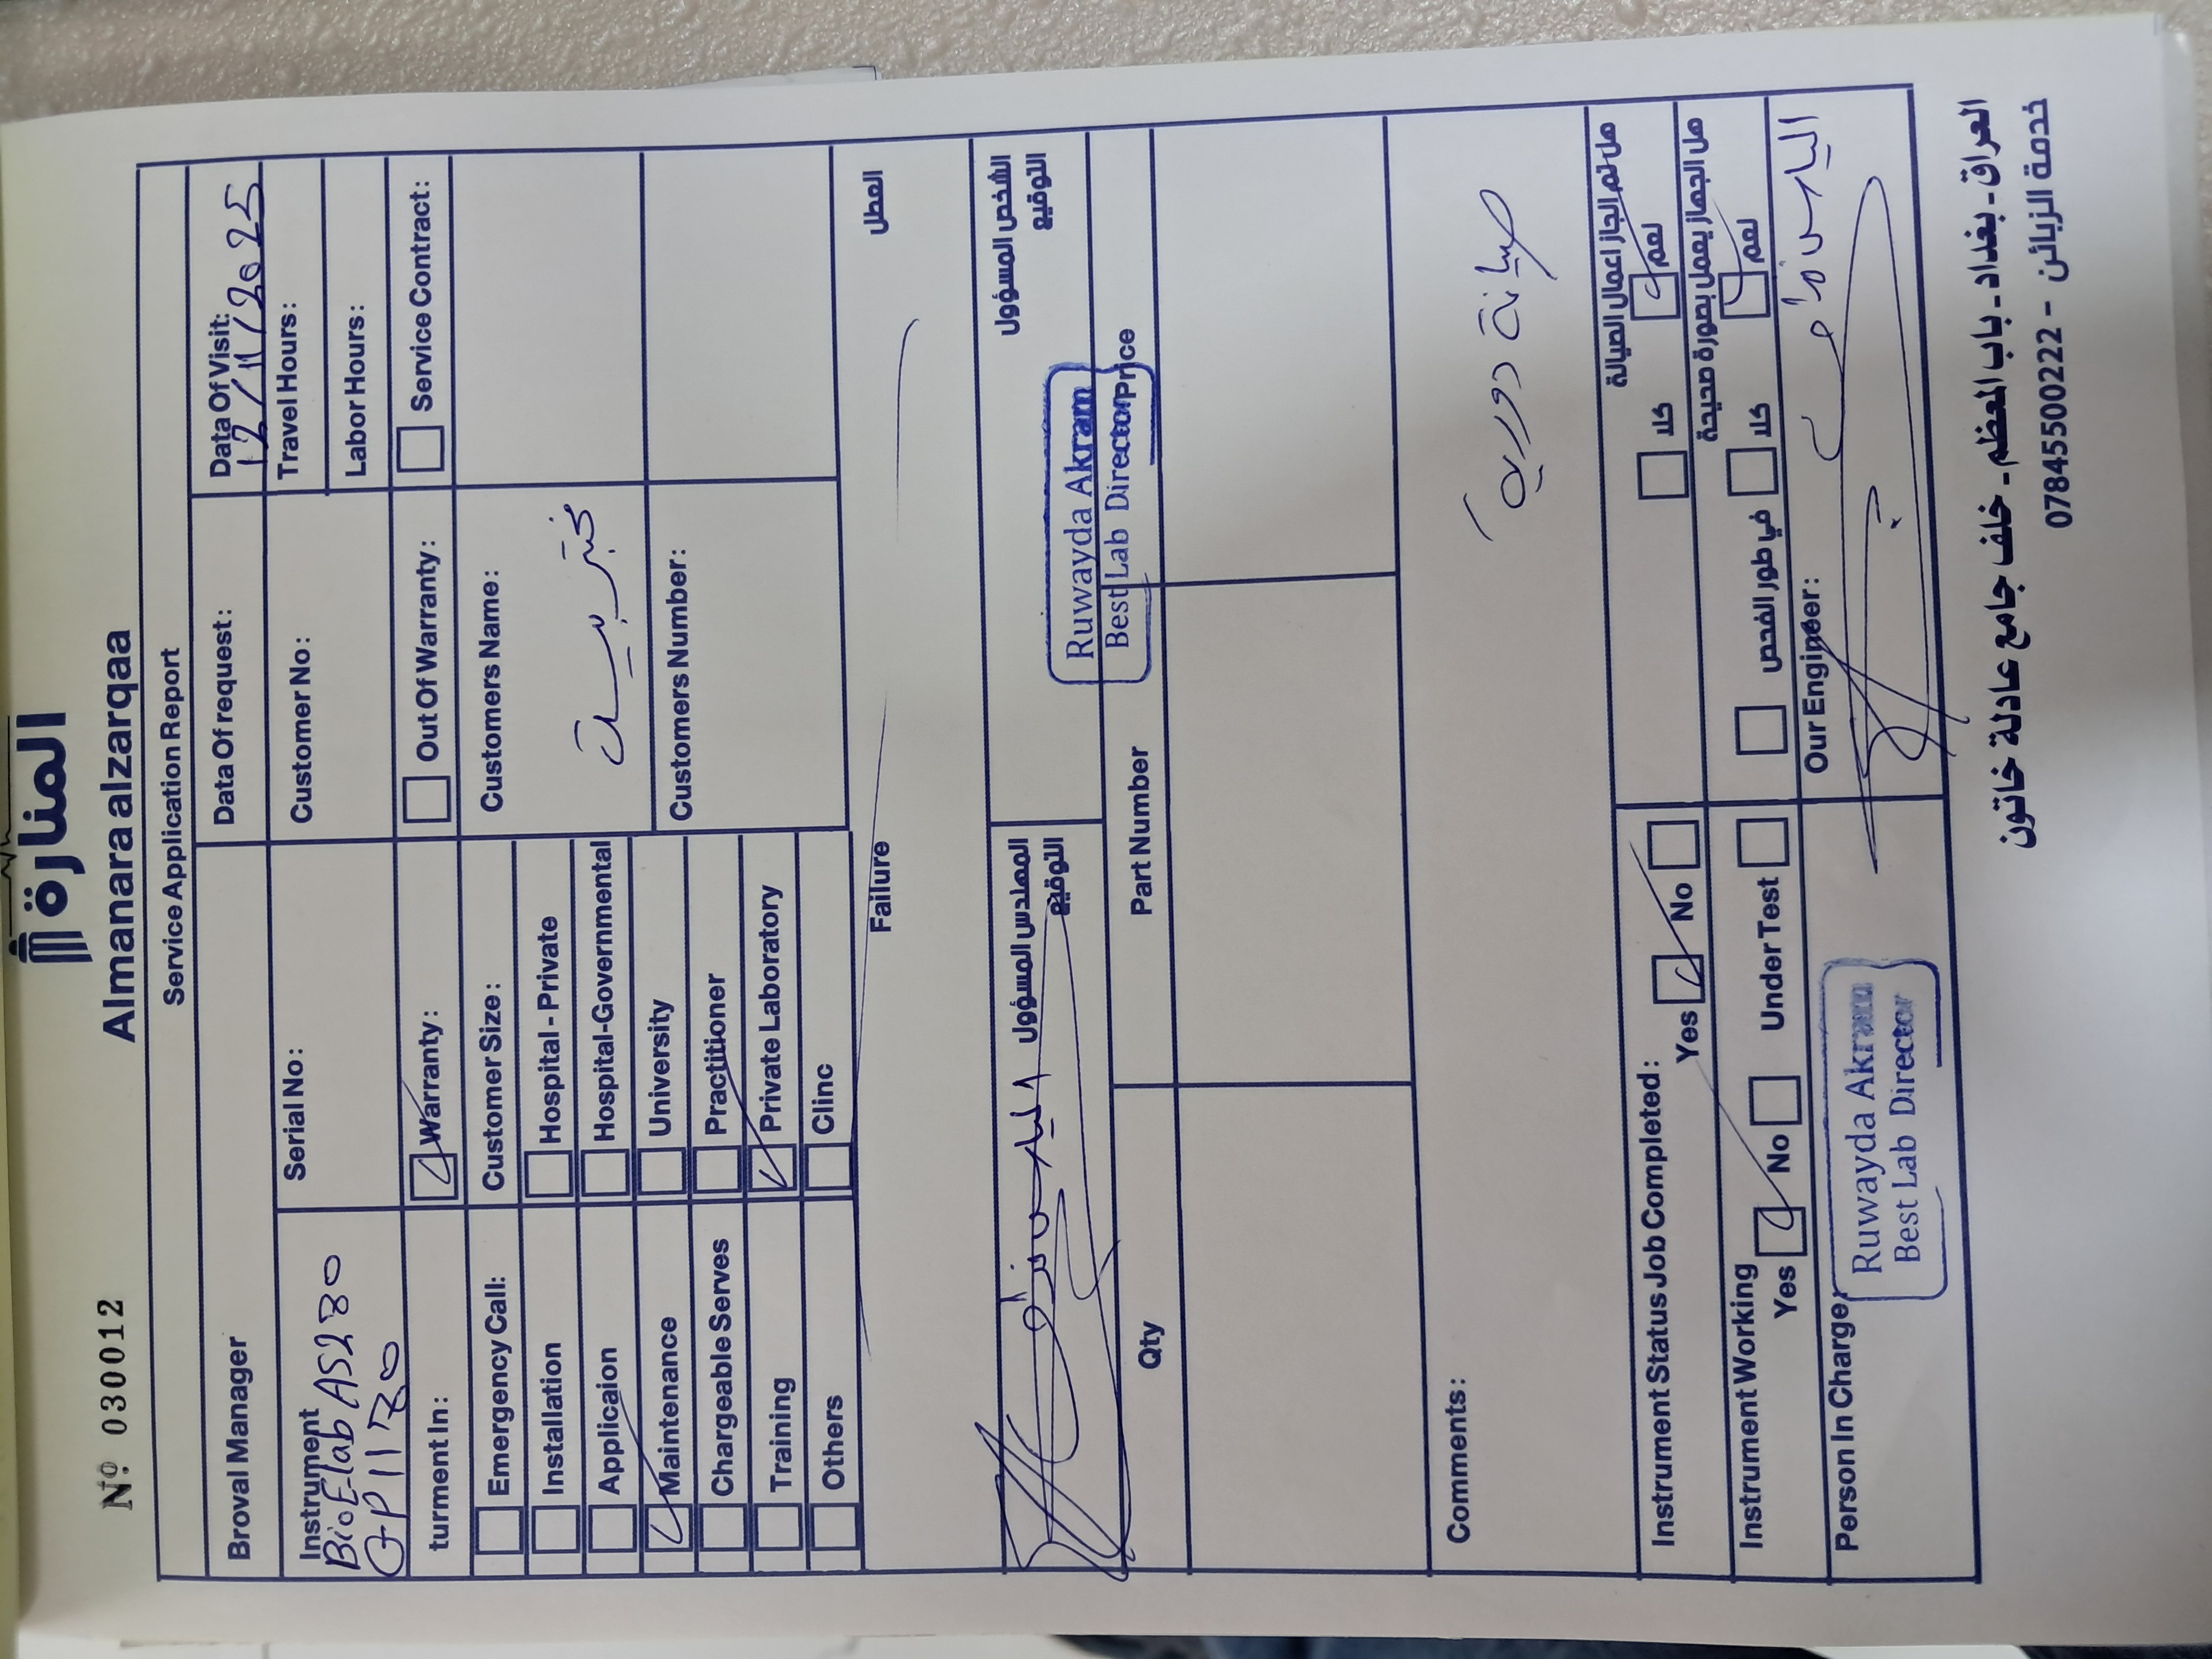 المنارة
Almanara alzarqaa
Nº 030012
Service Application Report
Broval Manager
Data Of request:
Data Of Visit:
12/11/2025
Instrument
BioElab AS280
Serial No:
Customer No:
Travel Hours:
Labor Hours:
turment In:
Warranty:
Out Of Warranty:
Service Contract:
Emergency Call:
Installation
Applicaion
Maintenance
Chargeable Serves
Training
Others
Customer Size:
Hospital - Private
Hospital-Governmental
University
Practitioner
Private Laboratory
Clinc
Customers Name:
مختبر بيست
Customers Number:
Failure
العطل
المهندس المسؤول
التوقيع
الشخص المسؤول
التوقيع
Ruwayda Akram
Best Lab Director
Qty
Part Number
Price
Comments:
صيانة دورية
Instrument Status Job Completed:
Yes No
هل تم انجاز اعمال الصيانة
كلا نعم
Instrument Working
Yes No Under Test
هل الجهاز يعمل بصورة صحيحة
في طور الفحص كلا نعم
Person In Charge:
Ruwayda Akram
Best Lab Director
Our Engineer:
العراق - بغداد - باب المعظم - خلف جامع عادلة خاتون
خدمة الزبائن - 07845500222